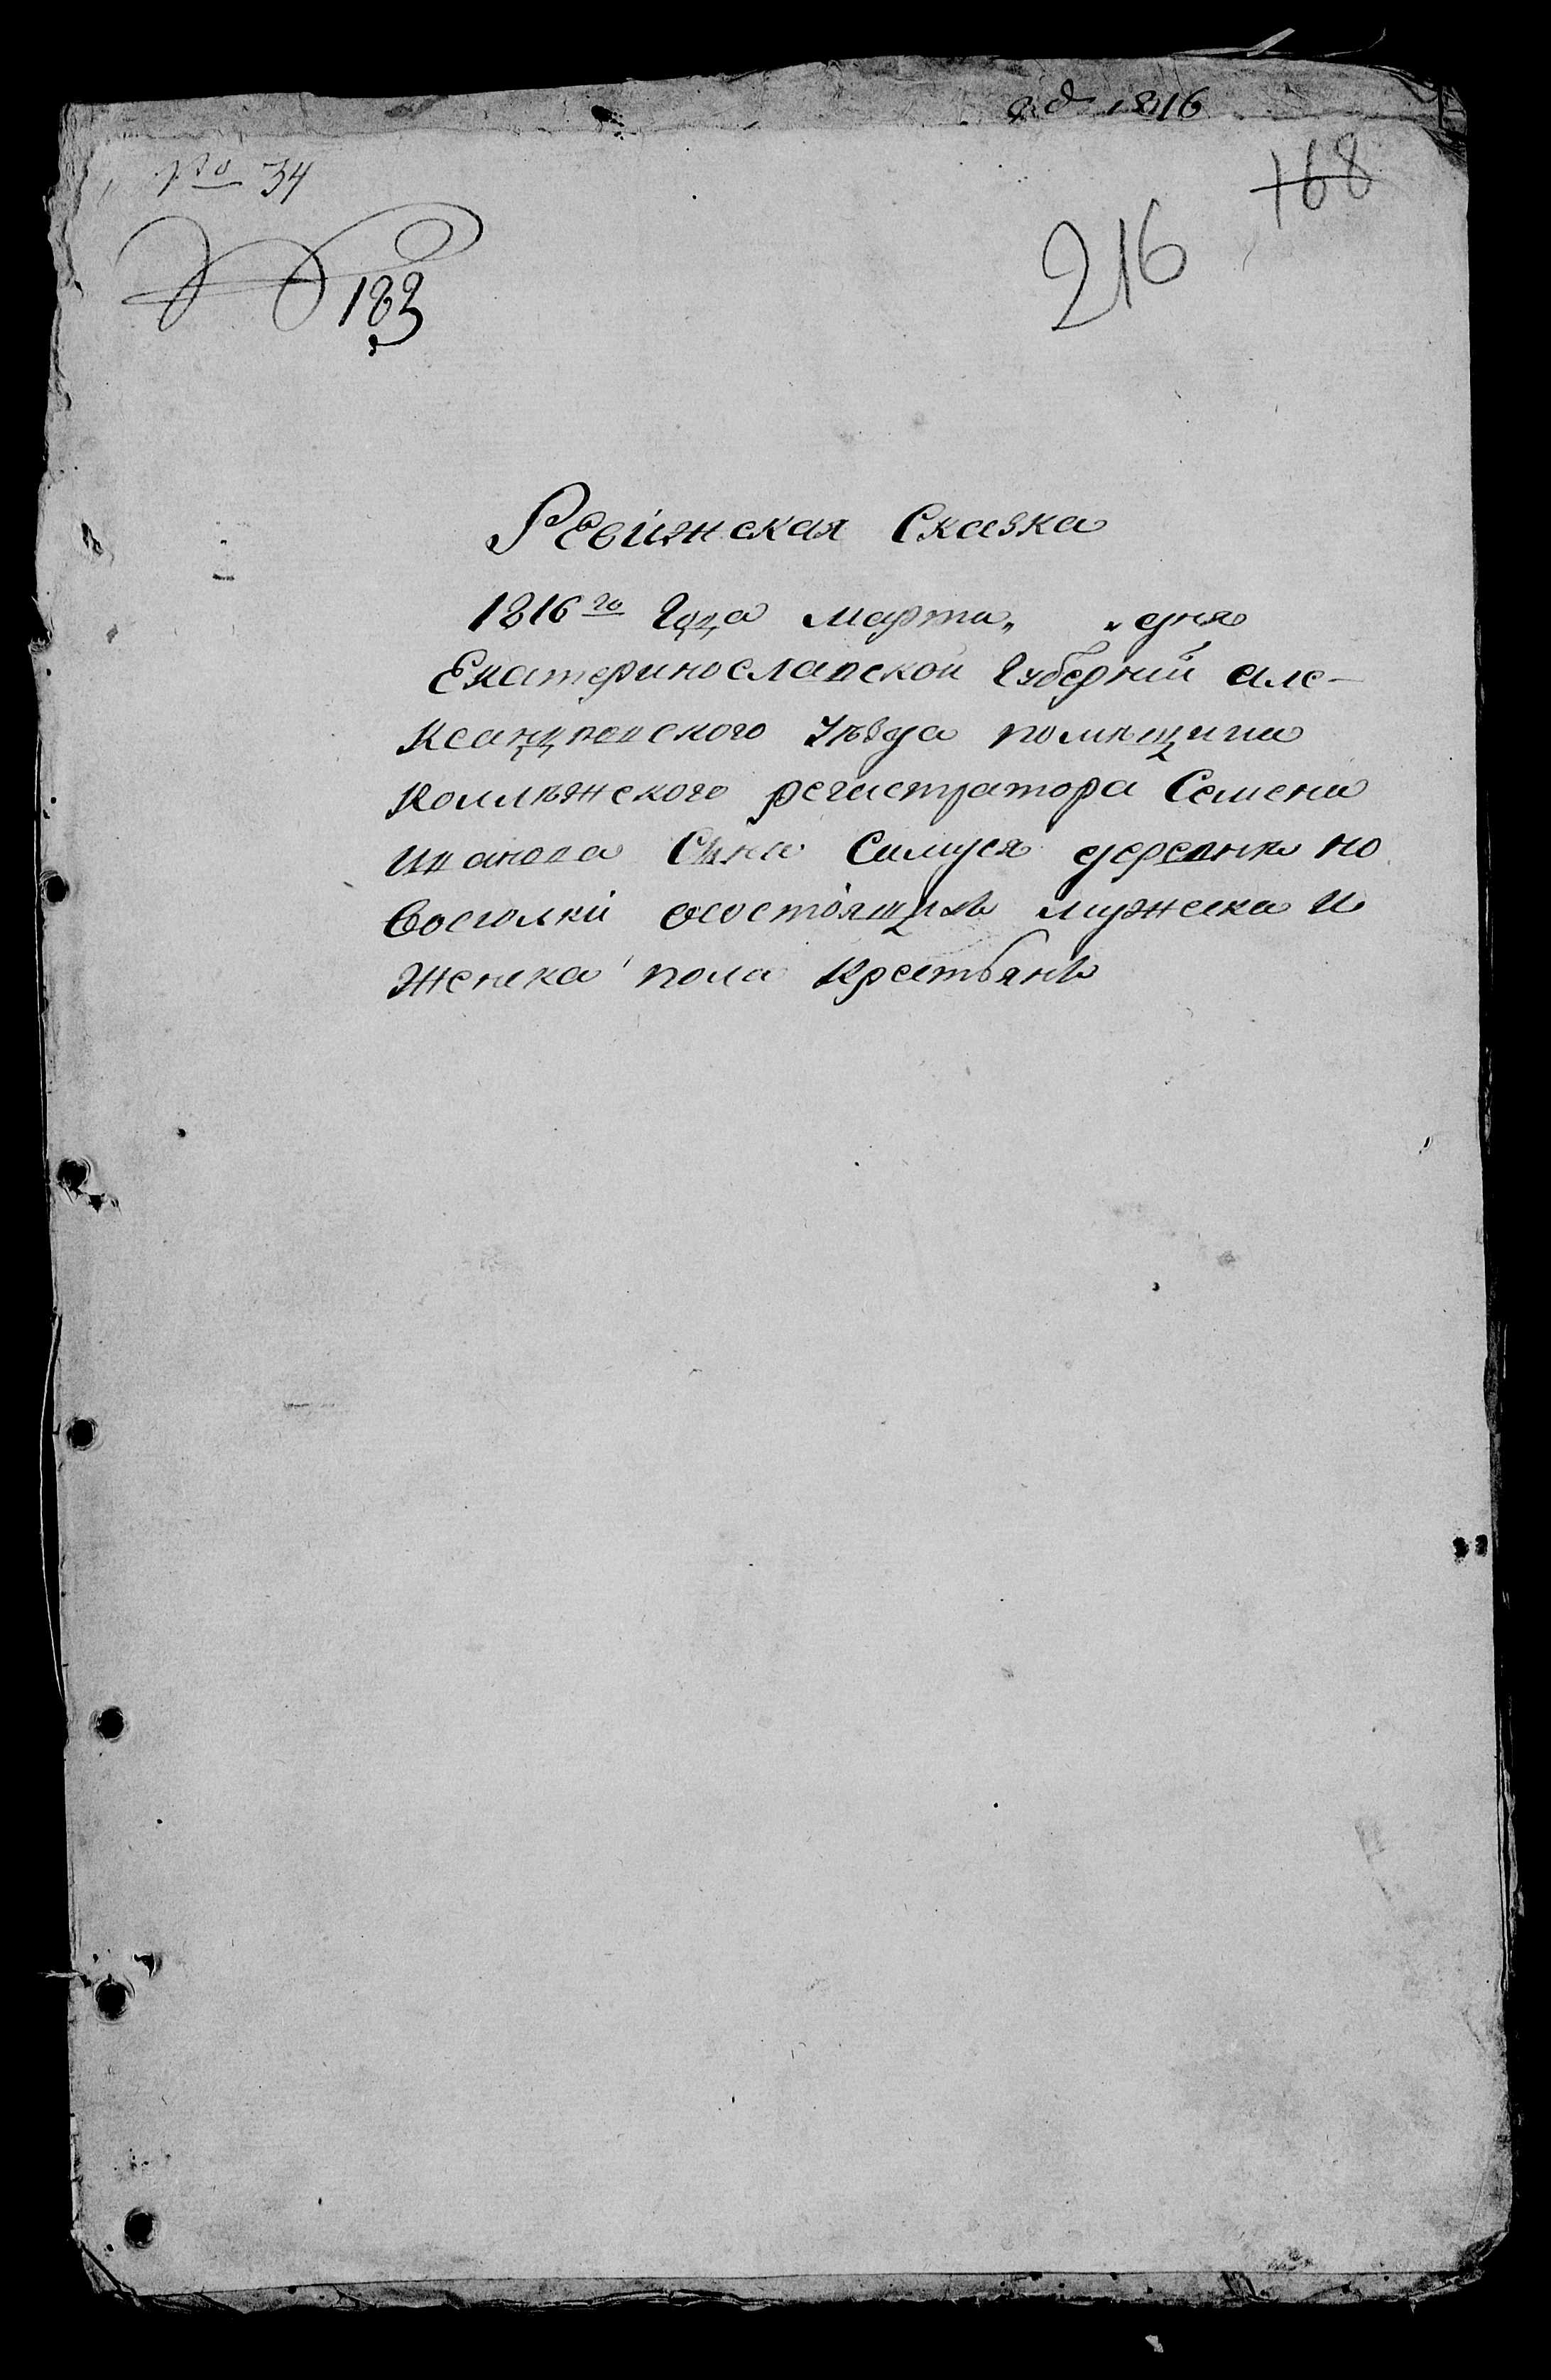 1816
No 34
168
216
183
Ревижская Сказка
1816го Года марта „ „ дня
Екатеринославской Губернии але-
ксандровского Уѣзда помѣщика
Коллѣжского регистратора Семена
Иванова Сына Самуся деревни но
восіолки состоящихъ мужеска и
женска пола крестьянъ